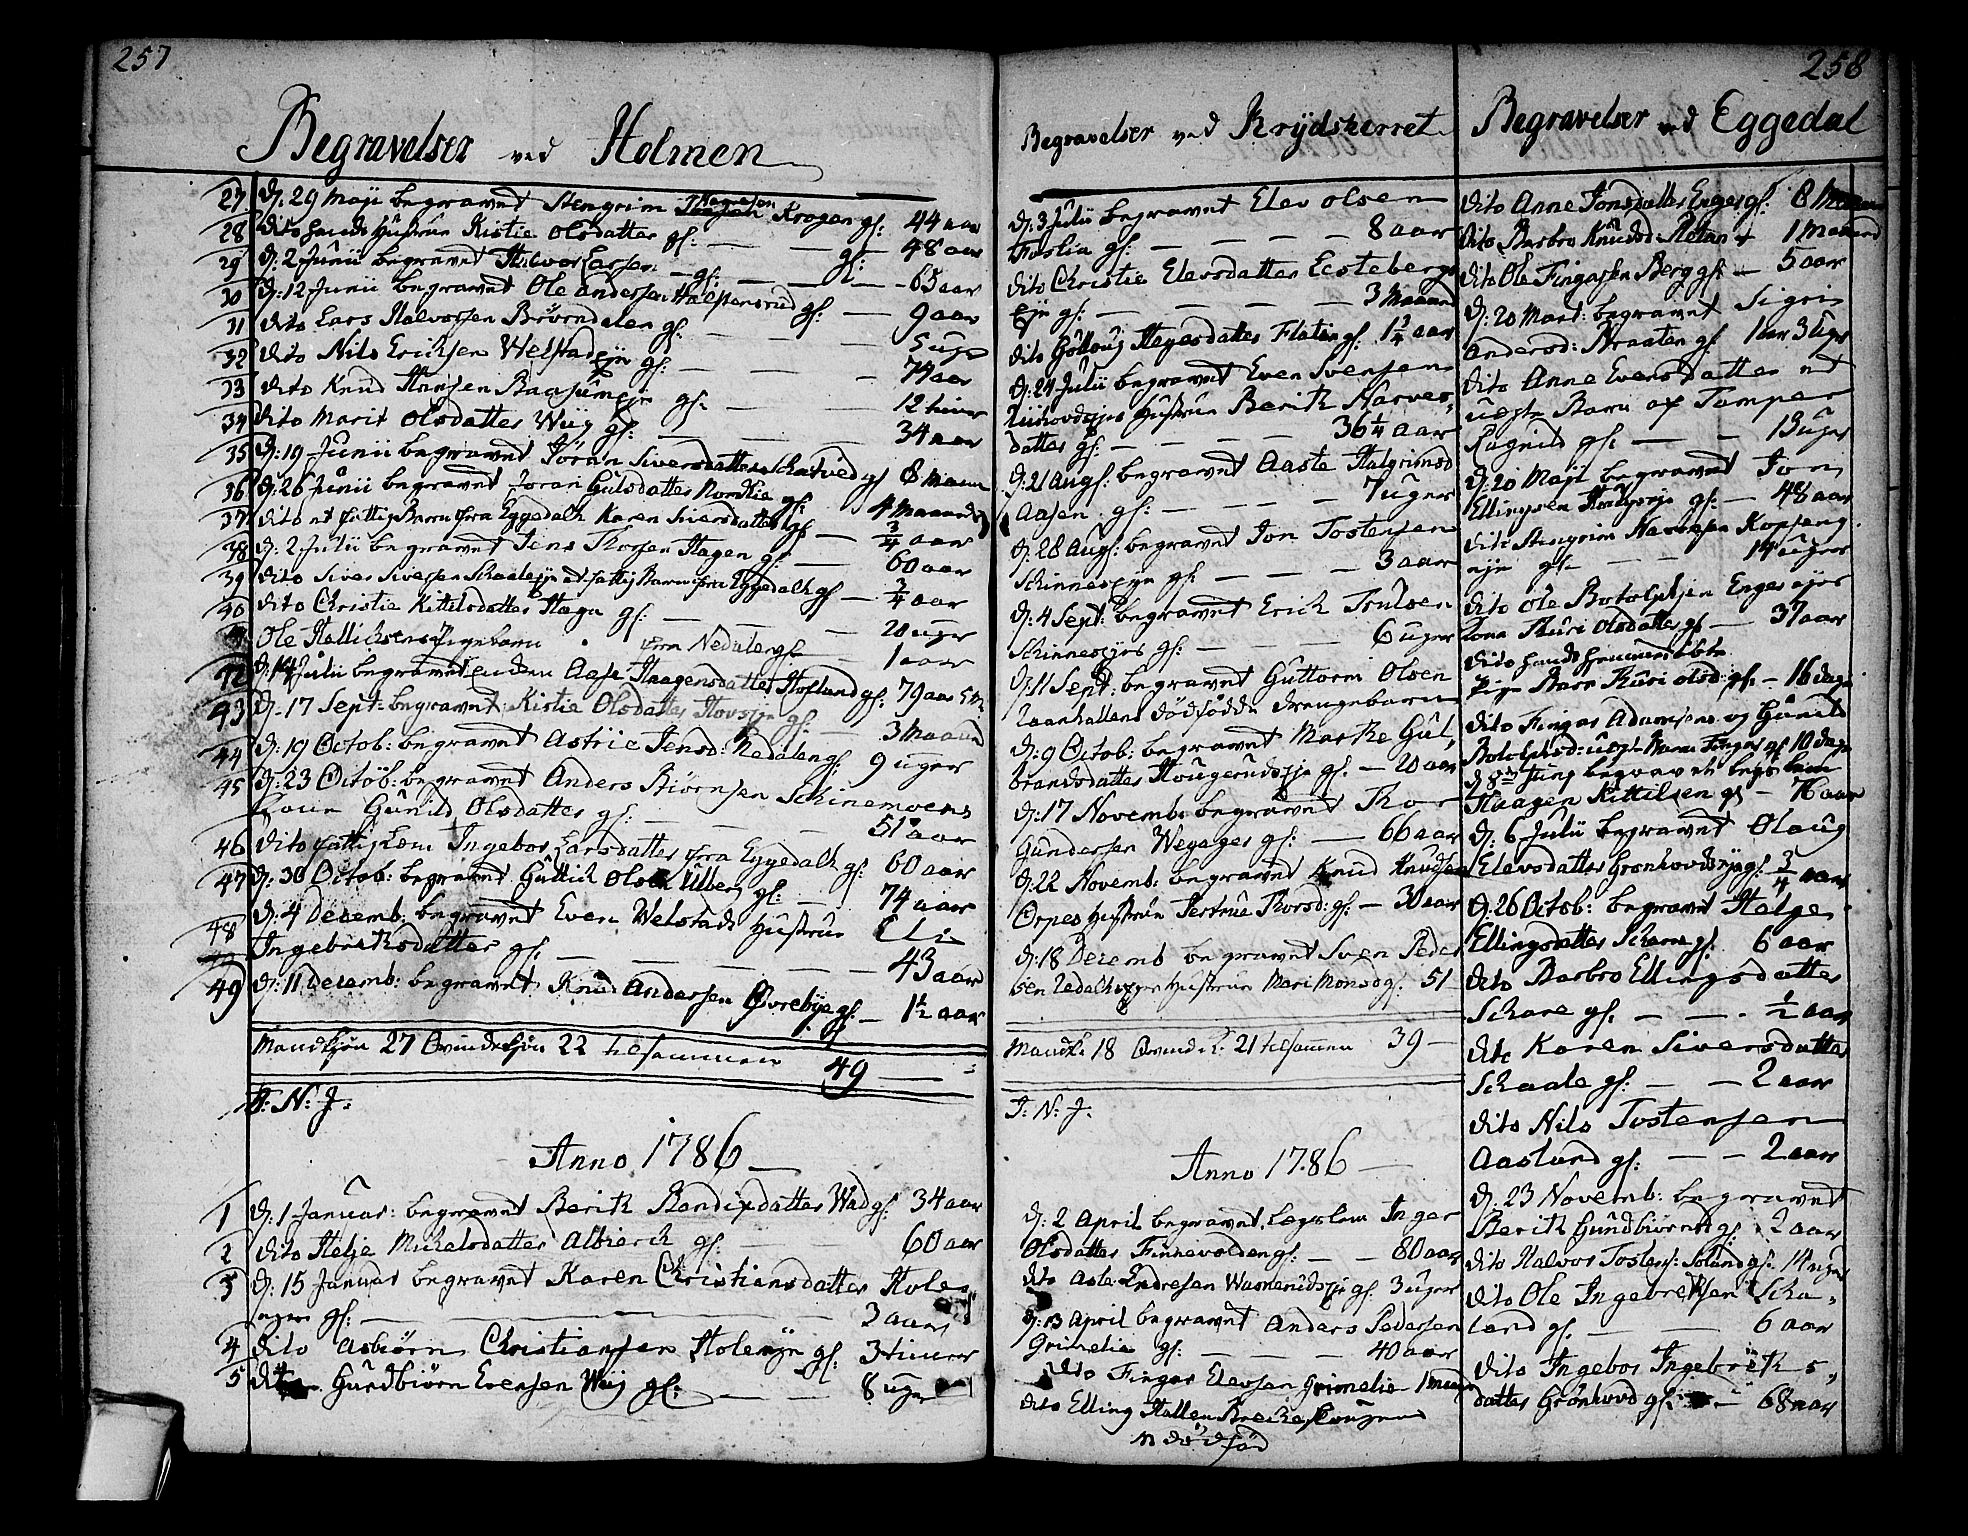 257
Begravelser ved Holmen
27 d: 29 Maji begravet Stengrim Krogan gl: 44 aar
28 dito hands Hustrue Kistie Olsdatter gl: 48 aar
29 d: 2 Junii begravet Halvor Larsen gl: 65 aar
30 d: 12 Junii begravet Ole Andersen gl: 9 aar
31 dito Lars Halvorsen Brörndalen gl: 5 uger
32 dito Nils Ericksen Welstadejn gl: 74 aar
33 dito Knud Hansen gl: 12 timer
34 dito Marit Olsdatter Wiig gl: 34 aar
35 d: 19 Junii begravet Jöran Siversdatter gl: 8 Maan
36 d: 26 Junii begravet Joran Gulsdatter Nordlie gl: 4 Maaneder
37 dito et fattig Barn fra Eggedahl Karen Siversdatter gl: 3/4 aar
38 d: 2 Julii begravet Jens Thorsen Hagen gl: 60 aar
39 dito Siver Siversen et fattig Barn fra Eggedahl gl: 3/4 aar
40 dito Christie Kittelsdatter Haga gl: 20 uger
41 Ole Hellichsens Pigebarn fra Nedalen gl: 1 aar
42 d: 14 Julii begravet Enken Aase Haagensdatter Hofland gl: 79 aar
43 d: 17 Sept: begravet Kistie Olsdatter gl: 3 Maaned
44 d: 19 Octob: begravet Astrie Jensd: Nedalen gl: 9 uger
45 d: 23 Octob: begravet Anders Biörnsen Schinemoens
Kone Gunild Olsdatter gl: 51 aar
46 dito fattig Lem Ingebor Larsdatter fra Eggedahl gl: 60 aar
47 d: 30 Octob: begravet Guttich Olsen Ulberg gl: 74 aar
48 d: 4 Decemb: begravet Even Welstads Hustrue Eli
Ingebrethsdatter gl: 43 aar
49 d: 11 Decemb: begravet Knud Andersen Övrebye gl: 1½ aar
Mandkjön 27 Qvindekjön 22 tilsammen 49
I: N: J:
Anno 1786
1 d: 1 Januar: begravet Berith Bendixdatter Wad gl: 34 aar
2 dito Helje Mickelsdatter Albierch gl: 60 aar
3 d: 15 Januar begravet Karen Christiansdatter Hole
gl: 3 aar
4 dito Asbiörn Christiansen Holeejn gl: 3 timer
5 dito Gundbiörn Evensen Wiig gl: 8 uger
258
Begravelser ved Krydsherret
d: 3 Julii begravet Elev Olsen
Foslia gl: 8 aar
dito Christie Elevsdatter Ecteberg
ejn gl: 3 Maaned
dito Gollaug Hegesdatter Flatin gl: 1¼ aar
d: 24 Julii begravet Even Svensen
Hustrue Berith Narves
datter gl: 36¼ aar
d: 21 Augs: begravet Aaste Halgrimsd
Aasen gl: 7 uger
d: 28 Augs: begravet Jon Tostensen
Skinnesejn gl: 3 aar
d: 4 Sept: begravet Erich
Skinnesejn gl: 6 uger
d: 11 Sept: begravet Guttorm Olsen
dödfödde drengebarn
d: 9 Octob: begravet Marthe Gul,
brandsdatter Hougerudsejn gl: 20 aar
d: 17 Novemb: begravet Thor
Gundersen gl: 66 aar
d: 22 Novemb: begravet Knud Knudsen
Hustrue Thorsd: gl: 30 aar
d: 18 Decemb begravet Sven Peder
sen Hustrue Mari Monsd gl: 51
Mandk: 18 Qvindek: 21 tilsammen 39
I: N: J:
Anno 1786
d: 2 April begravet Legslem Inger
Olsdatter Finnevolden gl: 80 aar
dito Asle Endresen gl: 3 uger
d: 13 April begravet Anders Pedersen
Grimelie gl: 40 aar
dito Fingar Elevsen Grimelie 1
dito Elling
dödföd
Begravelser ved Eggedal
dito Anne Jonsdatter gl: 8
dito Barbro Knudsd: 1 Maaned
dito Ole Fingarsen Berg gl: 5 aar
d: 20 Mart: begravet Sigri
Andersd: Braaten gl: 1 aar 3 uger
dito Anne Evensdatter et
uegte Barn af Tomper
Ragnild gl: 13 uger
d: 20 Maji begravet Jon
Ellingsen gl: 48 aar
dito Stengrim Kopseng
ejn gl: 14 uger
dito Ole Botolphsen
Kone Thuri Olsdatter gl: 37 aar
dito hands
Pige Barn Thuri Olsd: gl: 16 dage
dito Fingar Adamsens og Gunild
Botolphsd: uegte Barn Fingar gl: 10 dage
d: 8de Juny begravet
Haagen Kittilsen gl: 76 aar
d: 6 Julii begravet Olaug
Elevsdatter Grönhovdsejn gl: 3/4 aar
d: 26 Octob: begravet Helge
Ellingsdatter Schare gl: 6 aar
dito Barbro Ellingsdatter
Schare gl: ½ aar
dito Karen Siversdatter
Schaale gl: 2 aar
dito Nils Tostensen
Aaslund gl: 2 aar
d: 23 Novemb: begravet
Berith Gundbiörnsd gl: 2 aar
dito Halvor Tostens: gl: 14 uger
dito Ole Ingebretsen Scha,
land gl: 6 aar
dito Ingebor Ingebreths,
datter Grönhovd gl: 68 aar